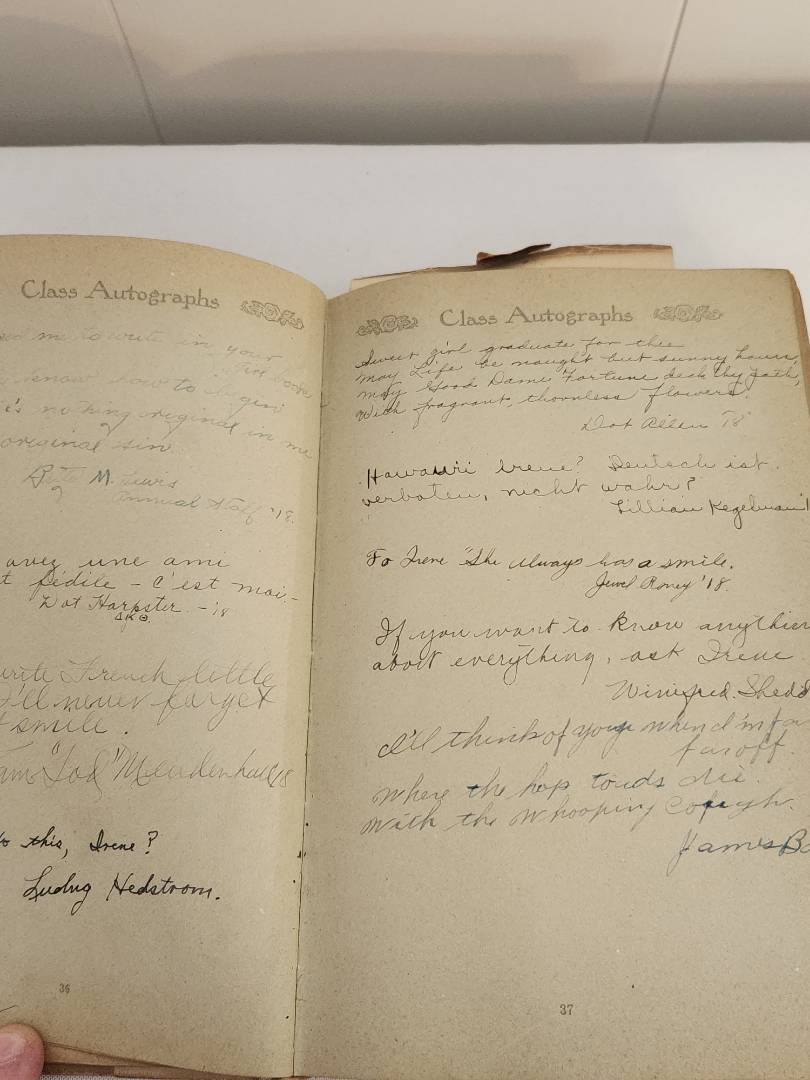 Class Autographs
me to write in your
know how to begin
nothing original in me
original sin.
M. Lewis
Annual Staff '18.
avez une ami
t fidile - c'est moi -
Dot Harpster - '18
ΔKΘ.
write French little
I'll never forget
t smile.
"Tod" Mendenhall '18
this, Irene?
Ludvg Hedstrom.
36
Class Autographs
Sweet girl graduate for thee
May Life be naught but sunny hours,
May Good Dame Fortune deck thy path,
With fragrant, thornless flowers.
Dot Allen '18
Irene? Deutsch ist
verboten, nicht wahr?
Lillian Kegelman
To Irene "She always has a smile.
Jewel Roney '18.
If you want to know anything
about everything, ask Irene
Winifred
I'll think of you when I'm far
far off.
Where the hop toads die.
With the Whooping Cough.
James
37